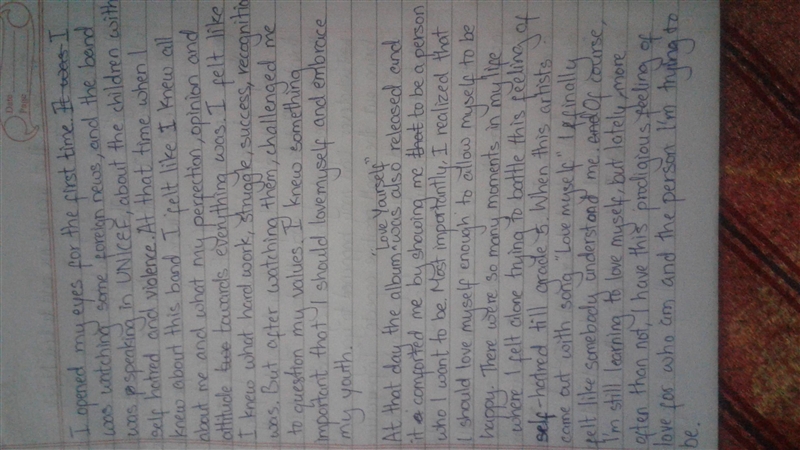 I opened my eyes for the first time. It was I
was watching some foreign news, and the band
was speaking in UNICEF, about the children with
self hatred and violence. At that time when I
knew about this band I felt like I knew all
about me and what my perfection, opinion and
attitude towards everything was. I felt like
I knew what hard work, struggle, success, recognition
was. But after watching them, challenged me
to question my values. I knew something
important that I should love myself and embrace
my youth.
"Love Yourself"
At that day the album was also released and
it comforted me by showing me that to be a person
who I want to be. Most importantly, I realized that
I should love myself enough to allow myself to be
happy. There were so many moments in my life
where I felt alone trying to battle this feeling of
self-hatred till grade 5. When this artists
came out with song "Love myself" I finally
felt like somebody understand me. and Of course,
I'm still learning to love myself, but lately, more
often than not, I have this prodigious feeling of
love for who am and the person I'm trying to
be.